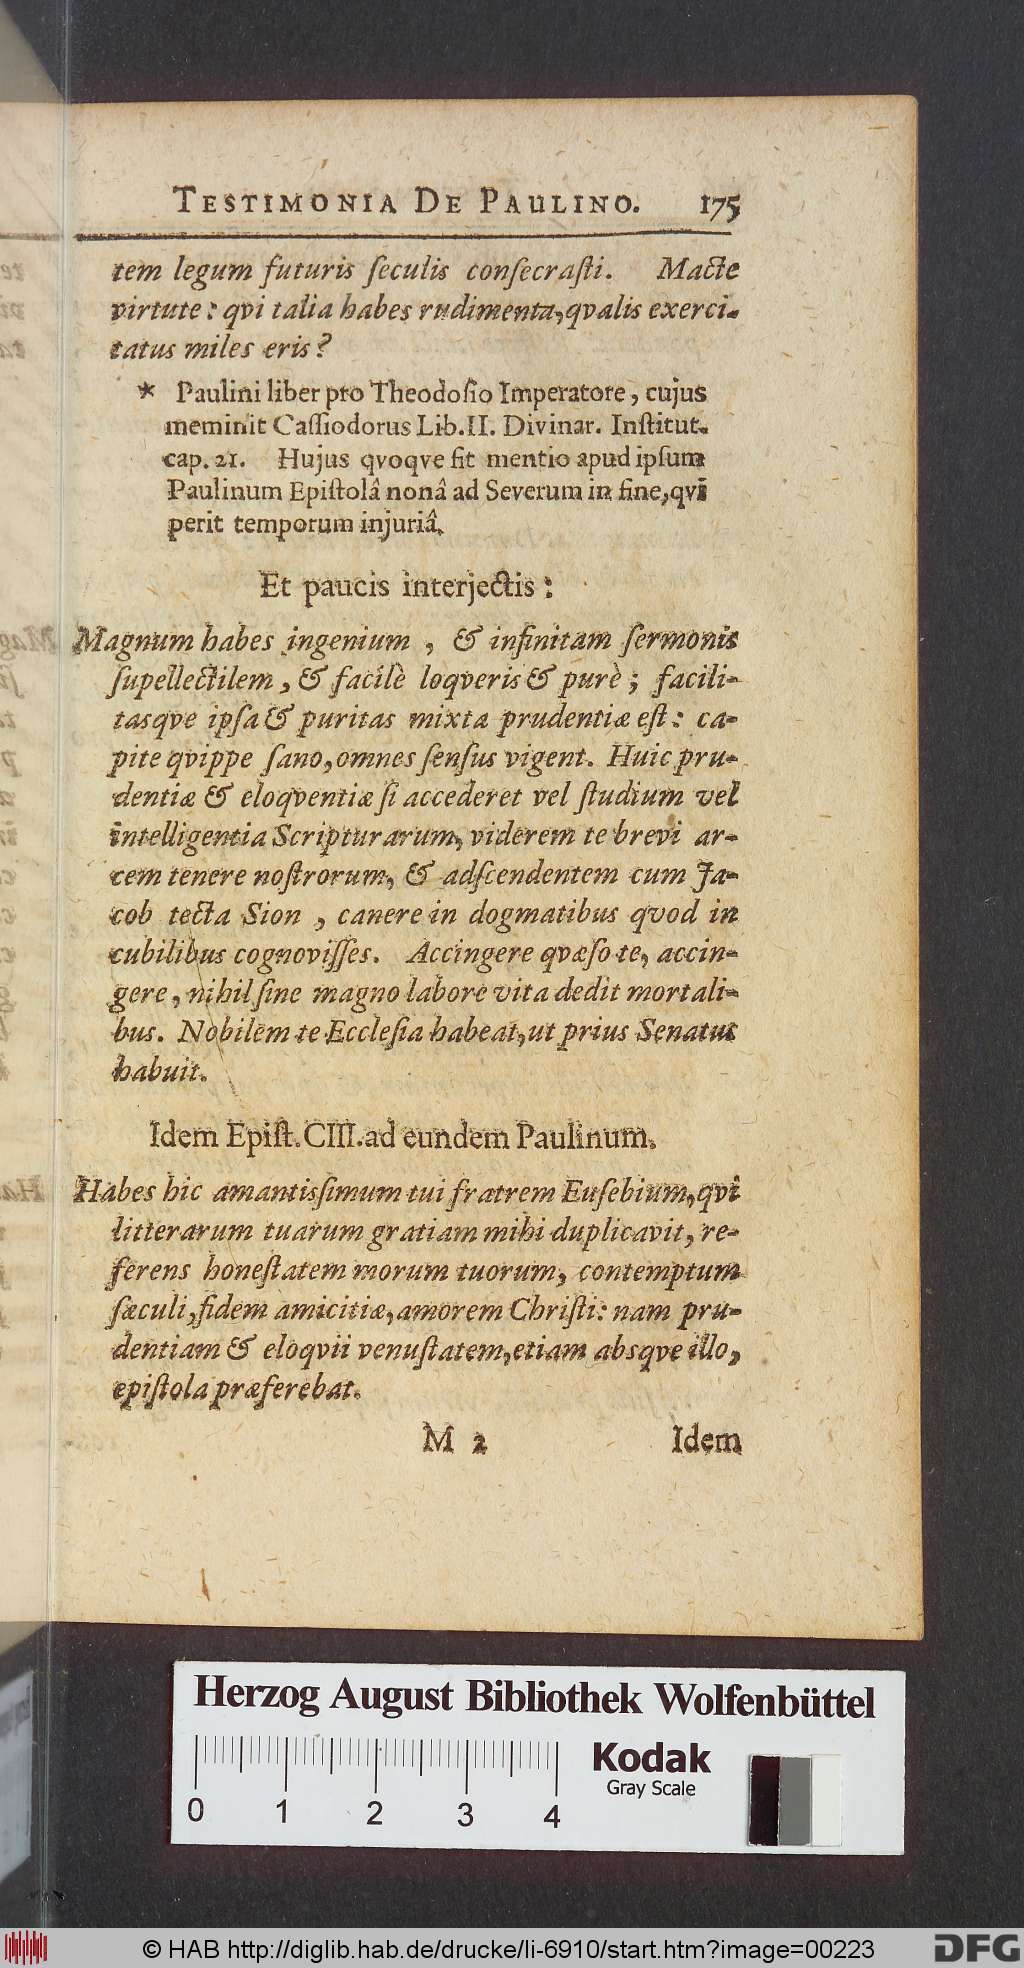 TESTIMONIA DE PAULINO. 175
tem legum futuris ſeculis conſecraſti. Macte
virtute: qvi talia habes rudimenta, qvalis exerci-
tatus miles eris?
* Paulini liber pro Theodoſio Imperatore, cujus
meminit Caſſiodorus Lib. II. Divinar. Inſtitut.
cap. 21. Hujus qvoqve fit mentio apud ipſum
Paulinum Epiſtolâ nonâ ad Severum in fine, qvi
perit temporum injuriâ.
Et paucis interjectis:
Magnum habes ingenium, & infinitam ſermonis
ſupellectilem, & facilè loqveris & purè; facili-
tasqve ipſa & puritas mixta prudentiæ eſt: ca-
pite qvippe ſano, omnes ſenſus vigent. Huic pru-
dentiæ & eloqventiæ ſi accederet vel ſtudium vel
intelligentia Scripturarum, viderem te brevi ar-
cem tenere noſtrorum, & adſcendentem cum Ja-
cob tecta Sion, canere in dogmatibus qvod in
cubilibus cognoviſſes. Accingere qvæſo te, accin-
gere, nihil ſine magno labore vita dedit mortali-
bus. Nobilem te Eccleſia habeat, ut prius Senatus
habuit.
Idem Epiſt. CIII. ad eundem Paulinum.
Habes hic amantisſimum tui fratrem Euſebium, qvi
litterarum tuarum gratiam mihi duplicavit, re-
ferens honeſtatem morum tuorum, contemptum
ſæculi, fidem amicitiæ, amorem Chriſti: nam pru-
dentiam & eloqvii venuſtatem, etiam absqve illo,
epiſtola præferebat.
M 2 Idem
Herzog August Bibliothek Wolfenbüttel
Kodak
Gray Scale
0 1 2 3 4
© HAB http://diglib.hab.de/drucke/li-6910/start.htm?image=00223
DFG